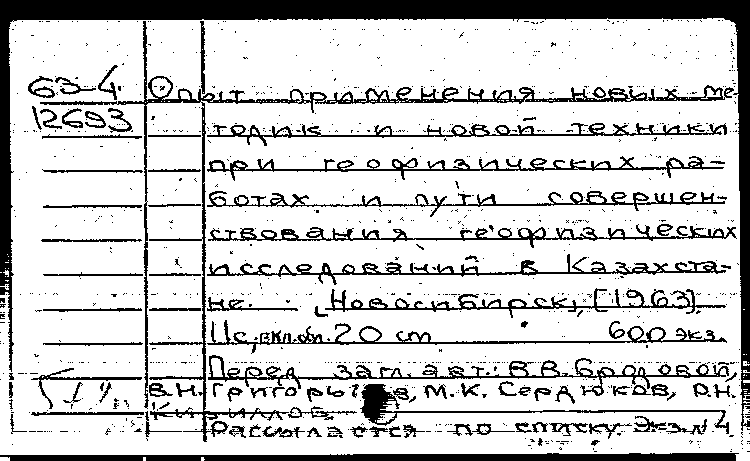 63-4 Опыт применения новых ме
12693 тодик и новой техники
при геофизических ра-
ботах и пути совершен-
ствования геофизических
исследований в Казахста-
не. Новосибирск, [1963].
11с., вкл. обл. 20 cm 600 экз.
Перед загл. авт.: В.В. Бродовой,
В.Н. Григорьев, М.К. Сердюков,
Кириллов.
Рассылается по списку. Экз. №4